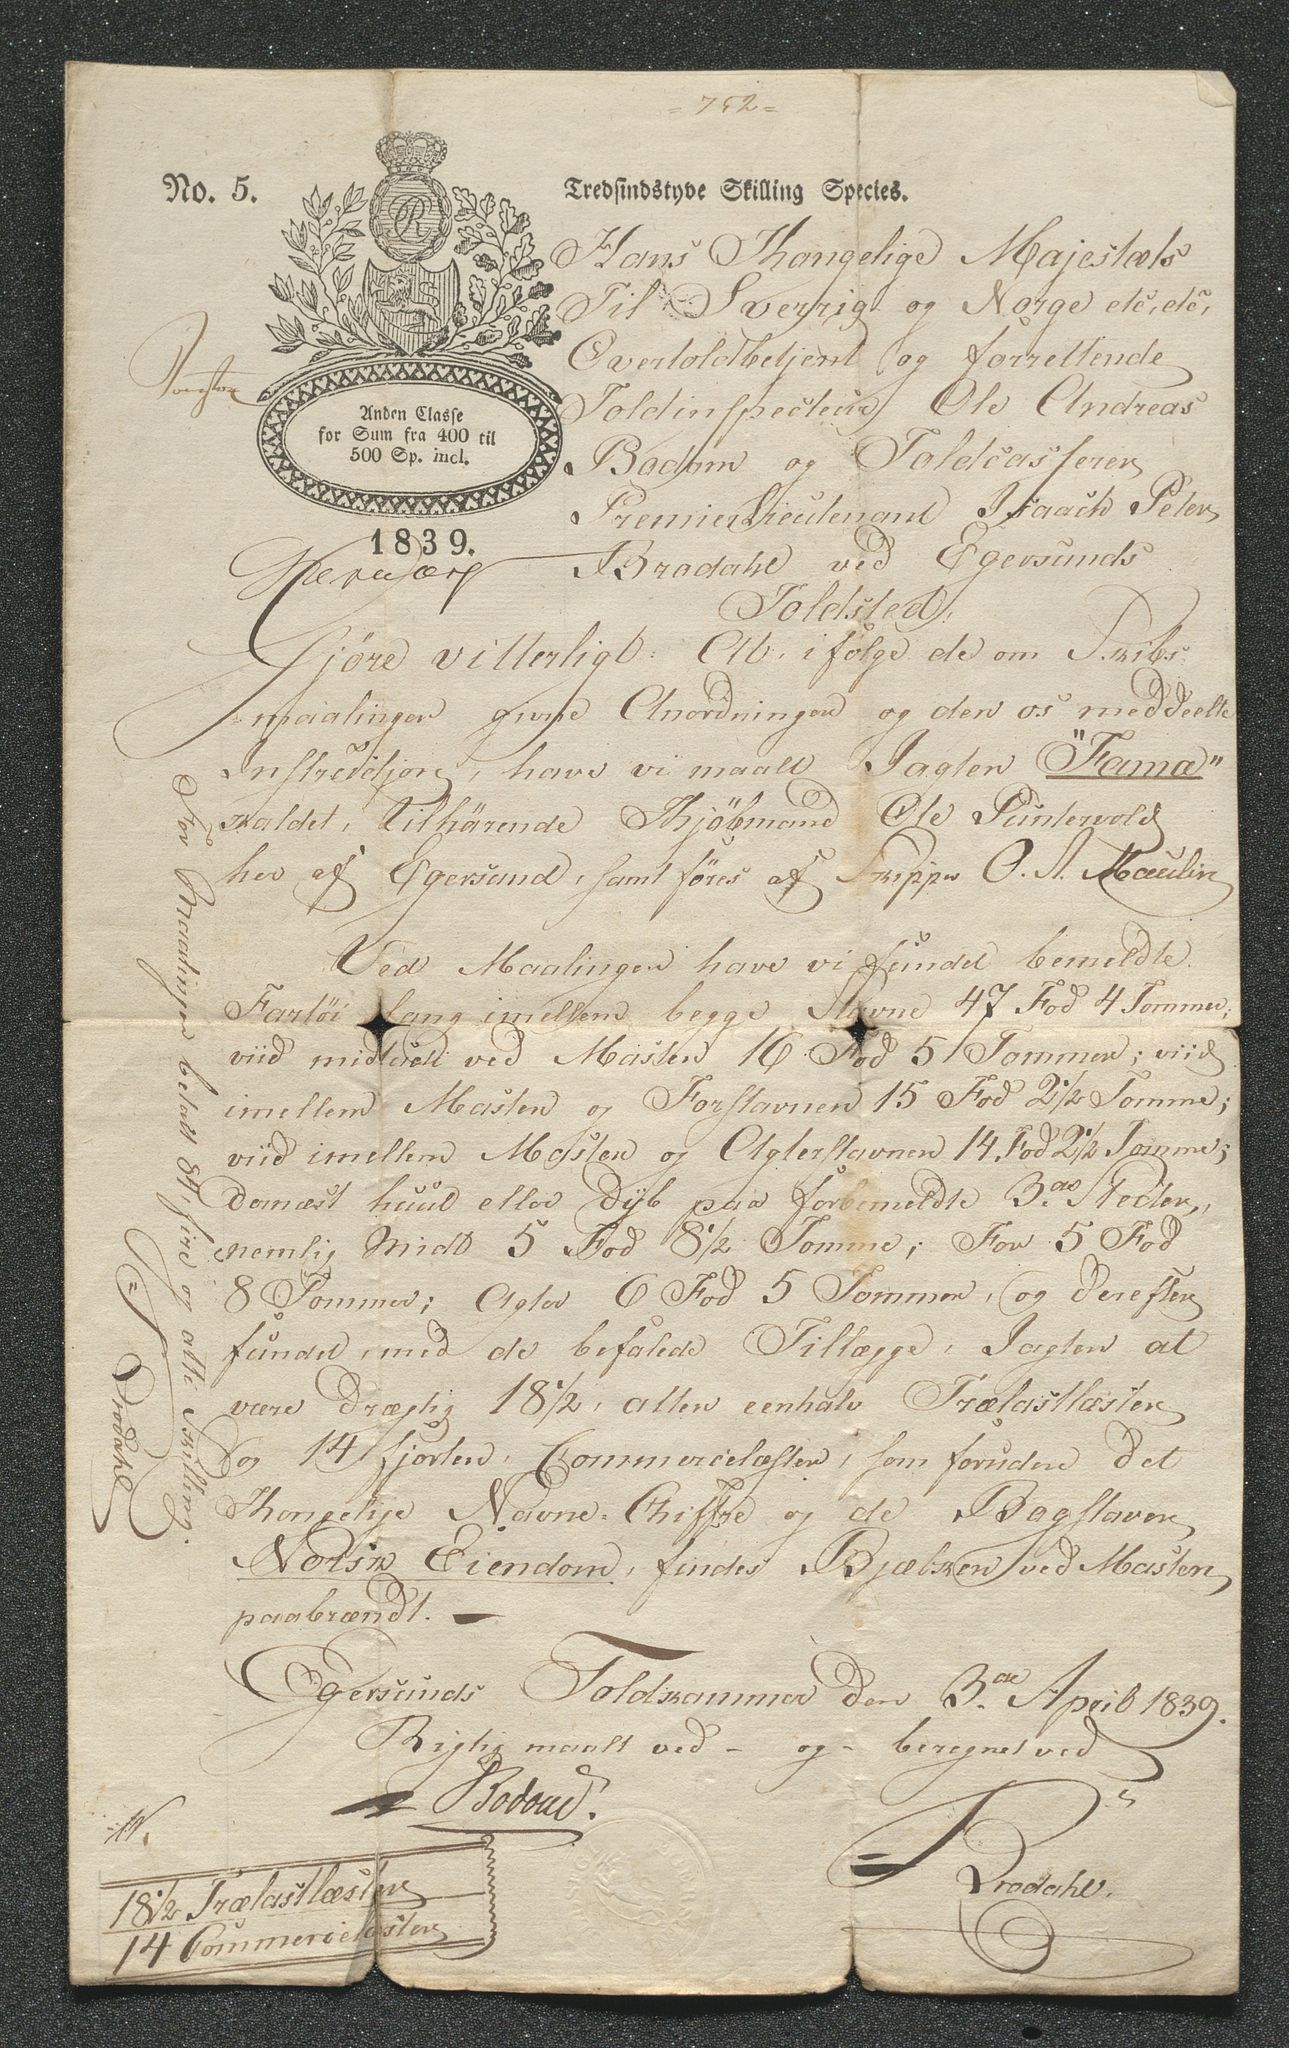 = 752 =
No. 5.
Tredsindstyve Skilling Species.
R
Anden Classe
for Sum fra 400 til
500 Sp. incl.
1839.
Hans Kongelige Majestæts
Til Sverrig og Norge etc, etc,
Overtoldbetjent og forrettende
Toldinspecteur Ole Andreas
Bodom og Toldcasserer
Premierlieutenant Isaach Peter
Brodahl ved Egersunds
Toldsted,
Gjøre vitterligt: At, ifølge de om Skibs-
maalinger givne Anordninger og den os meddeelte
Instruction, have vi maalt Jagten "Fama"
kaldet, tilhørende Kjøbmand Ole Puntervold
her af Egersund, samt føres af Skipper O. A. Maulin
Ved Maalingen have vi fundet bemeldte
Fartøi lang imellem begge Stavne 47 Fod 4 Tommer;
viid midtskib ved Masten 16 Fod 5 Tommer; viid
imellem Masten og Forstavnen 15 Fod 2 1/2 Tomme;
viid imellem Masten og Agterstavnen 14 Fod 2 1/2 Tomme;
dernæst huul eller dyb paa forbemeldte 3de Steder,
nemlig Midt 5 Fod 8 1/2 Tomme; For 5 Fod
8 Tommer; Agter 6 Fod 5 Tommer, og derefter
fundet, med de befalede Tillægge, Jagten at
være drægtig 18 1/2, atten eenhalv Trælastlæster
og 14 fjorten, Commercelæster, som foruden det
Kongelige Navne-Chiffre og de Bogstaver
Norsk Eiendom, findes Bjælken ved Masten
paabrændt. —
Egersunds Toldkammer den 3de April 1839.
Rigtig maalt ved – og – beregnet ved
Bodom.
Brodahl.
18 1/2 Trælastlæster
14 Commercelæster
For Maalingen betalt 84, fire og otti Skilling.
Brodahl